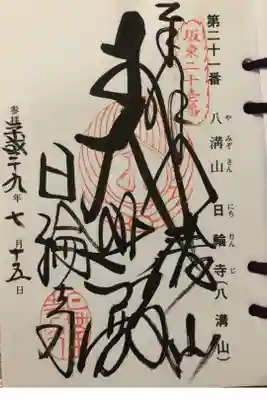 第二十一番
八溝山 日輪寺(八溝山)
や みぞ さん にち りん じ
坂東二十一番
奉拝
八溝山
大悲殿
日輪寺
参拝 平成二十九年七月十五日